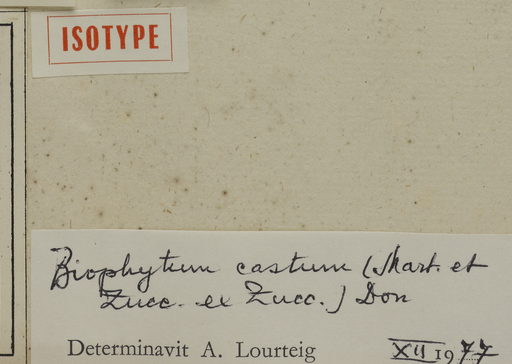 ISOTYPE
Biophytum castum (Mart. et
Zucc. ex Zucc.) Don
Determinavit A. Lourteig XII 1977